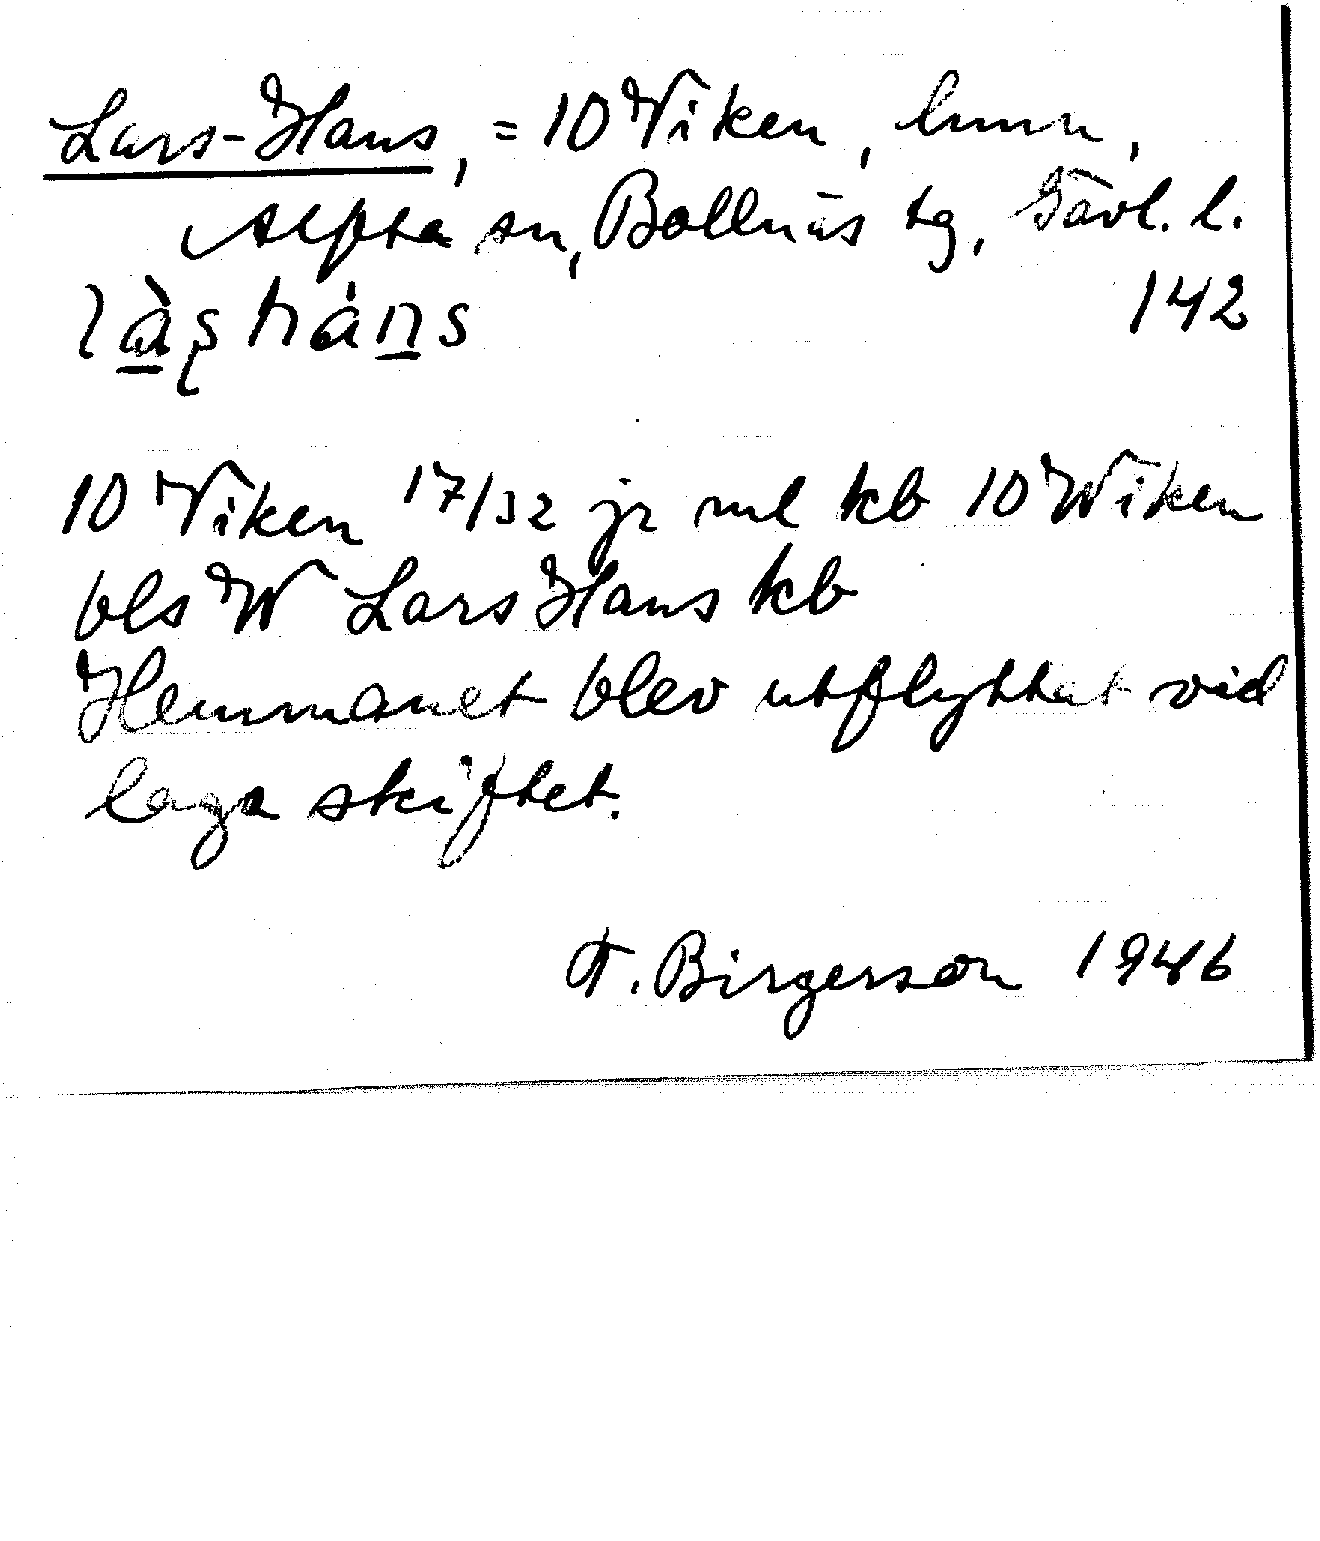 Lars-Hans, = 10 Viken, hmn,
Alfta sn, Bollnäs tg, Gävl. l.
142
làʂháns
10 Viken 17/32 jr ml kb 10 Wiken
bls W Lars Hans kb
Hemmanet blev utflyttat vid
laga skiftet.
F. Birgerson 1946